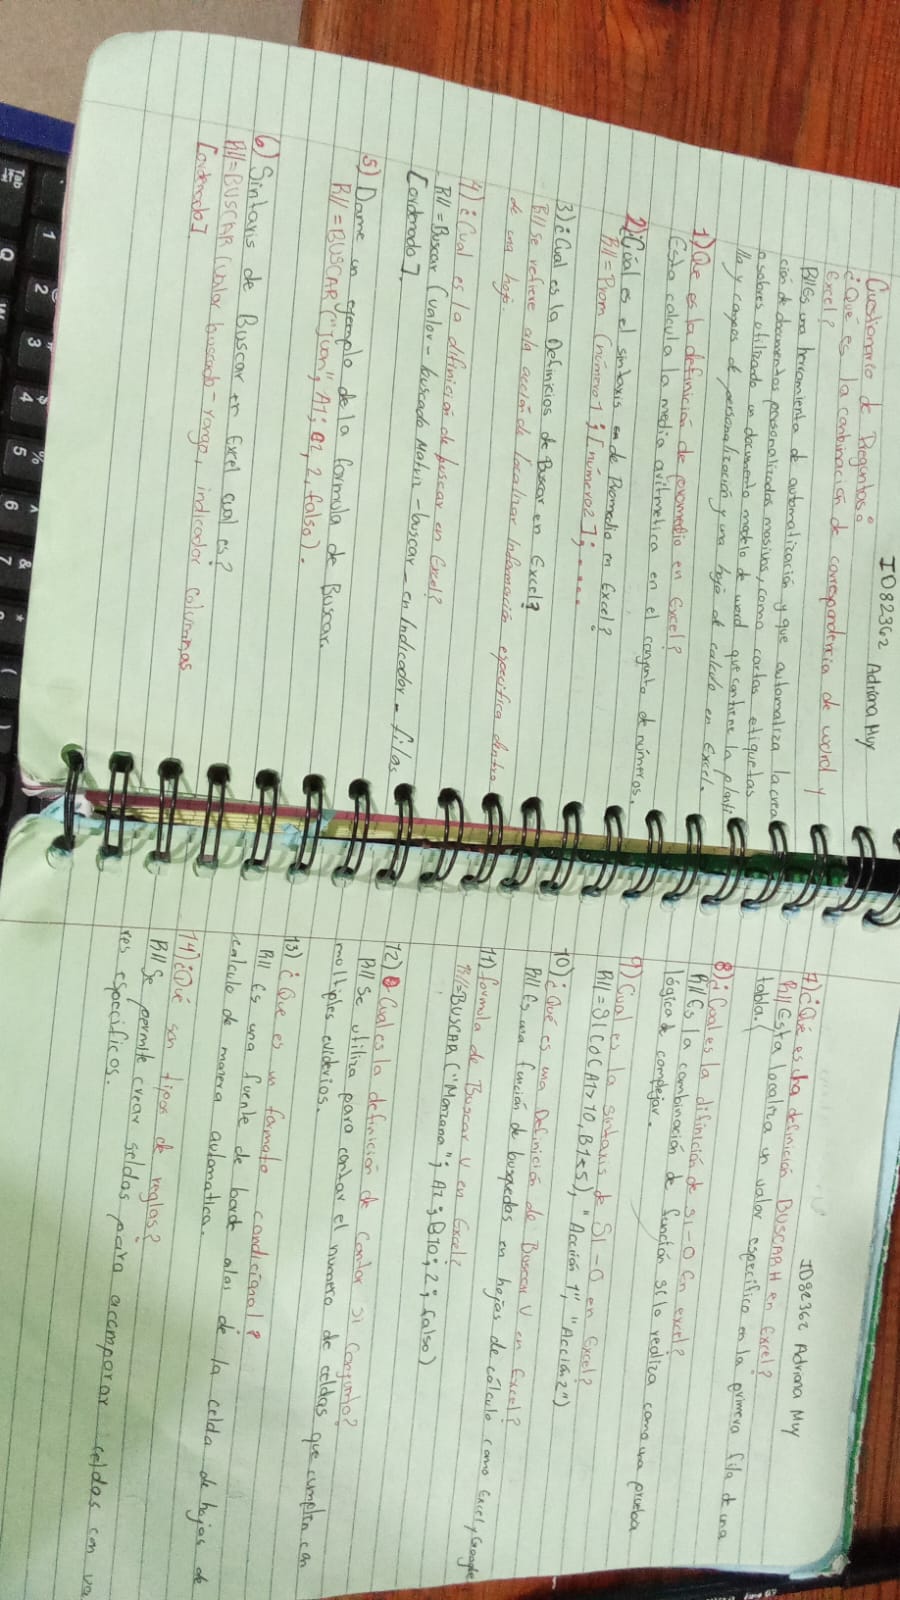 ID82362 Adriana Muy
Cuestionario de Preguntas
¿Qué es la conbinación de correspondencia de word y
Excel?
R// Es una herramienta de automatización y que automatiza la crea
ción de documentos personalizados masivos, como cartas etiquetas
o sobres utilizado un documento modelo de word que contiene la planti
lla y campos de personalización y una hoja de calculo en Excel.
1) Que es la definición de promedio en Excel?
Esta calcula la media aritmetica en el conjunto de números.
2) ¿Cúal es el sintaxis en de Promedio en Excel?
R// = Prom (número 1; [número 2]; ....
3) ¿Cual es la Definicios de Buscar en Excel?
R// Se refiere ala acción de localizar información especifica dentro
de una hoja.
4) ¿Cual es la difinición de buscar en Excel?
R// = Buscar (valor-buscado Matriz-buscar-en Indicador-filas
[ordenado].
5) Dame un ejemplo de la formula de Buscar.
R// = BUSCAR ("Juan", A1; 2, falso).
6) Sintaris de Buscar en Excel cual es?
R// = BUSCAR (valor buscado-rango, indicador Columnas
[ordenado]
ID82362 Adriana Muy
7) ¿Qué es definición BUSCARH en Excel?
R// Esta localiza un valor especifico en la primera fila de una
tabla.
8) ¿Cual es la difinición de SI-O En excel?
R// Es la combinación de función si lo realiza como una prueba
lógica compejar.
9) Cual es la sintaxis de SI-O en Excel?
R// = SI (O (A1>10, B1<5), "Acción 1", "Acción 2")
10) ¿Qué es una Definición de Buscar V en Excel?
R// Es una función de busquedas en hojas de cálculo como Excel y Google
11) formula de Buscar V en Excel?
R// = BUSCAR ("Manzana"; A2; B10; 2; falso)
12) Cual es la definición de Contar Si Conjunto?
R// Se utiliza para contar el numero de celdas que cumplen con
moltiples
13) ¿Que es un formato condicional?
R// Es una fuente de borde alas de la celda de hojas de
calculo de manera automatica.
14) ¿Qué son tipos de reglas?
R// Se permite crear seldas para acomporar celdas con va
res especificos.